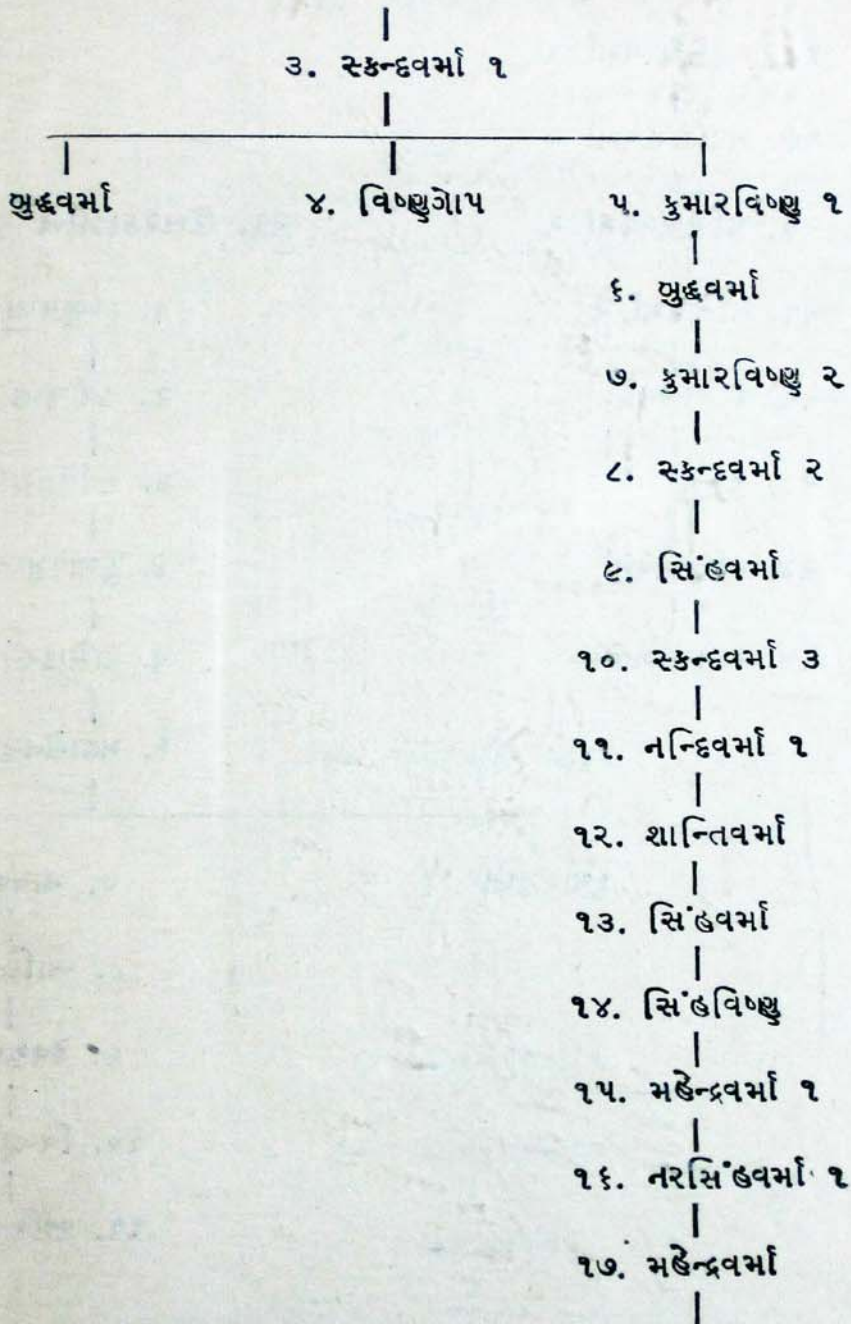 ૩. સ્કન્દવર્મા ૧
બુદ્ધવર્મા ૪. વિષ્ણુગોપ ૫. કુમારવિષ્ણુ ૧
૬. બુદ્ધવર્મા
૭. કુમારવિષ્ણુ ૨
૮. સ્કન્દવર્મા ૨
૯. સિંહવર્મા
૧૦. સ્કન્દવર્મા ૩
૧૧. નન્દિવર્મા ૧
૧૨. શાન્તિવર્મા
૧૩. સિંહવર્મા
૧૪. સિંહવિષ્ણુ
૧૫. મહેન્દ્રવર્મા ૧
૧૬. નરસિંહવર્મા ૧
૧૭. મહેન્દ્રવર્મા